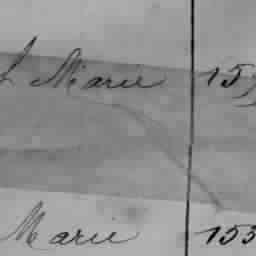 Marie 15
Marie 155